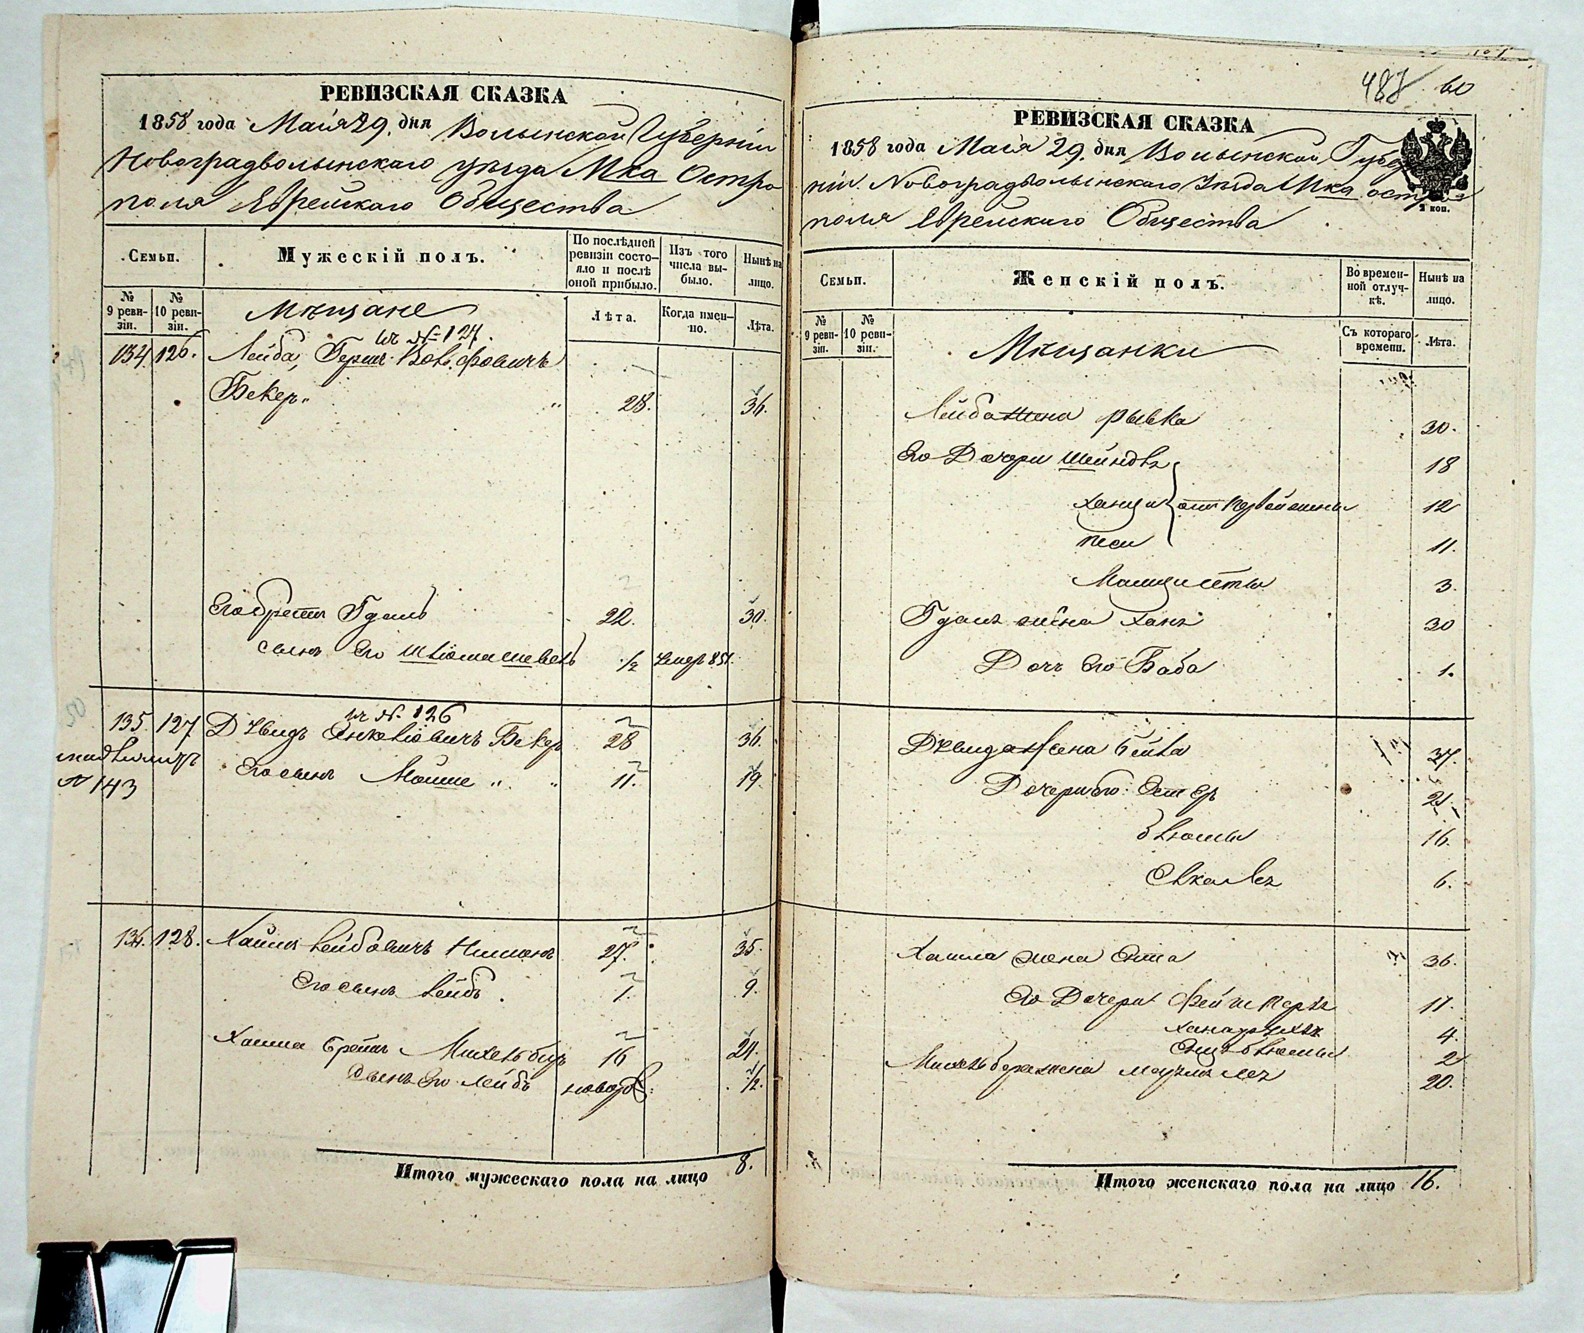 РЕВИЗСКАЯ СКАЗКА
1858 года Мая 29. дня Волынской Губерніи
Новоградволынскаго уезда Мка Остро
поля Еврейскаго Общества
Семьи.
Мужескій полъ.
По послѣдней ревизіи состо-яло и послѣ оной прибыло.
Изъ того числа вы-было.
Нынѣ на лицо.
№ 9 реви-зіи.
№ 10 реви-зіи.
Мѣщане
Лѣта.
Когда имен-но.
Лѣта.
№ 124.
134. 126. Лейба, Герш Вольфовичъ
Бекер 28. 36.
Его братъ Гдаль 22. 30.
сынъ Его 1/2 умеръ 851.
№ 126
135. 127 Давидъ Янкеліовичъ Бекер 28 36.
№ 143 Его сынъ Мошие 11. 19.
136. 128. Хаимъ Лейбовичъ 27. 35.
Его сынъ Лейбъ. 1. 9.
Хаима братъ Михель беръ 16 24.
Сынъ Его Лейбъ новор: 1/2.
Итого мужескаго пола на лицо 8.
487 60
РЕВИЗСКАЯ СКАЗКА
1858 года Мая 29. дня Волынской Губер
ніи Новоградволынскаго Уезда Мка остро
поля Еврейскаго Общества
2 коп.
Семьи.
Женскій полъ.
Во времен-ной отлуч-кѣ.
Нынѣ на лицо.
№ 9 реви-зіи.
№ 10 реви-зіи.
Мѣщанки
Съ котораго времени.
Лѣта.
Лейба жена Рывка 30.
Его Дочери Шейндля 18
Ханця от первой жены 12
Песи 11.
3.
Гдаля жена Хана 30
Дочь Его Баба 1.
Давида жена Бейла 37.
Дочери его: Естеръ 21.
Блюма 16.
6.
Хаима жена Ента 36.
Его Дочери Фейга Перля 11.
4.
Блюма 2
Михель бера жена 20.
Итого женскаго пола на лицо 16.